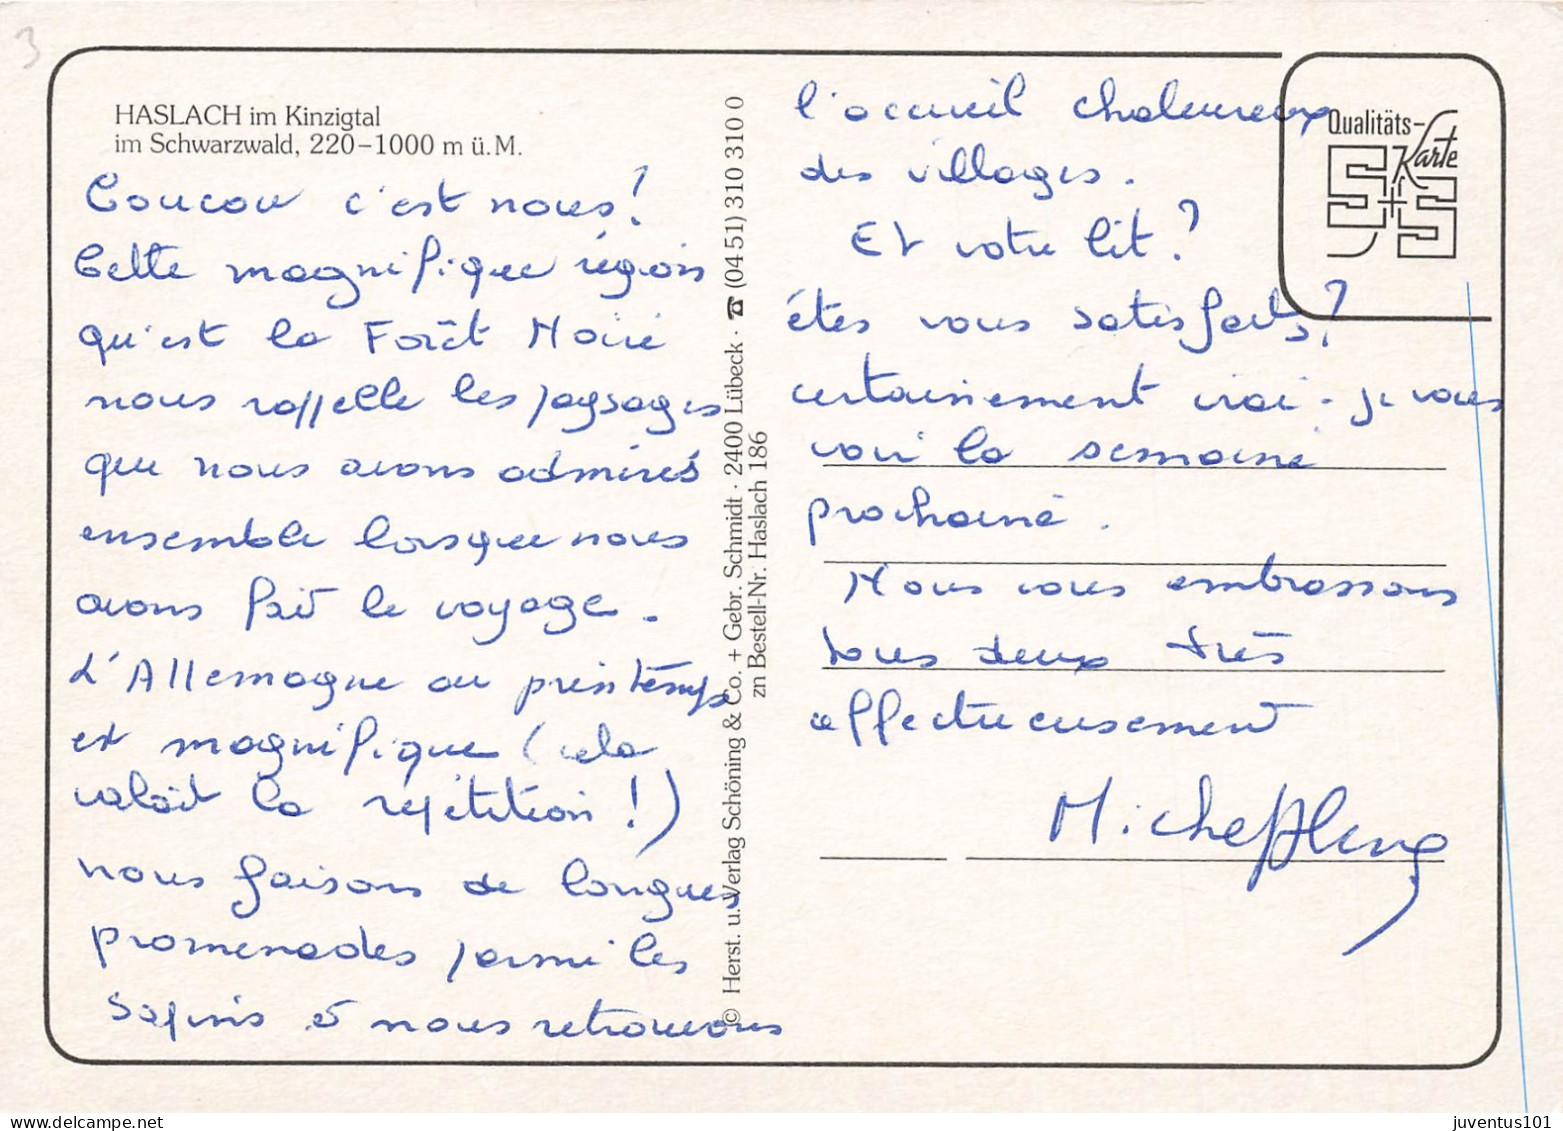 3
HASLACH im Kinzigtal
im Schwarzwald, 220–1000 m ü. M.
Coucou c'est nous !
Cette magnifique région
qu'est la Forêt Noire
nous rappelle les paysages
que nous avons admirés
ensemble lorsque nous
avons fait le voyage.
L'Allemagne au printemps
est magnifique (cela
valait la répétition !)
nous faisons de longues
promenades parmi les
sapins et nous retrouvons
© Herst. u. Verlag Schöning & Co. + Gebr. Schmidt · 2400 Lübeck · ☎ (04 51) 310 310 0
zn Bestell-Nr. Haslach 186
l'accueil chaleureux
des villages.
Et votre lit ?
êtes vous satisfaits ?
certainement vrai - je vous
voir la semaine
prochaine.
Nous vous embrassons
tous deux très
affectueusement
Qualitäts-
Karte
S+S
juventus101